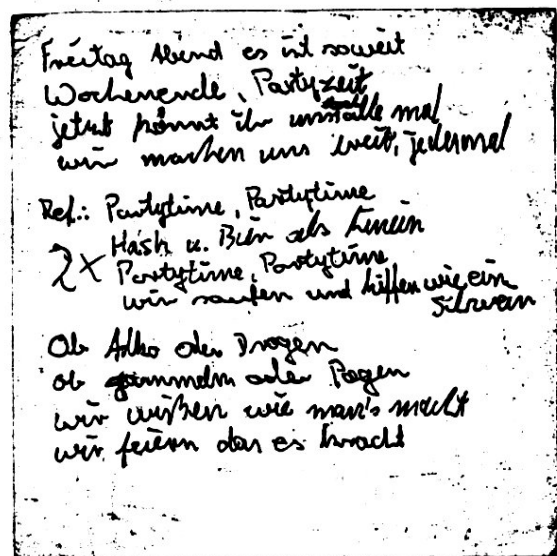 Freitag Abend es ist soweit
Wochenende, Partyzeit
jetzt könnt ihr uns alle mal
wir machen uns breit, jedesmal
Ref.: Partytime, Partytime
2x Hash u. Bier als
Partytime, Partytime
wir saufen und kiffen wie ein
Schwein
Ob Alko oder Drogen
ob gammeln oder Pogen
wir wißen wie man's macht
wir feiern das es kracht